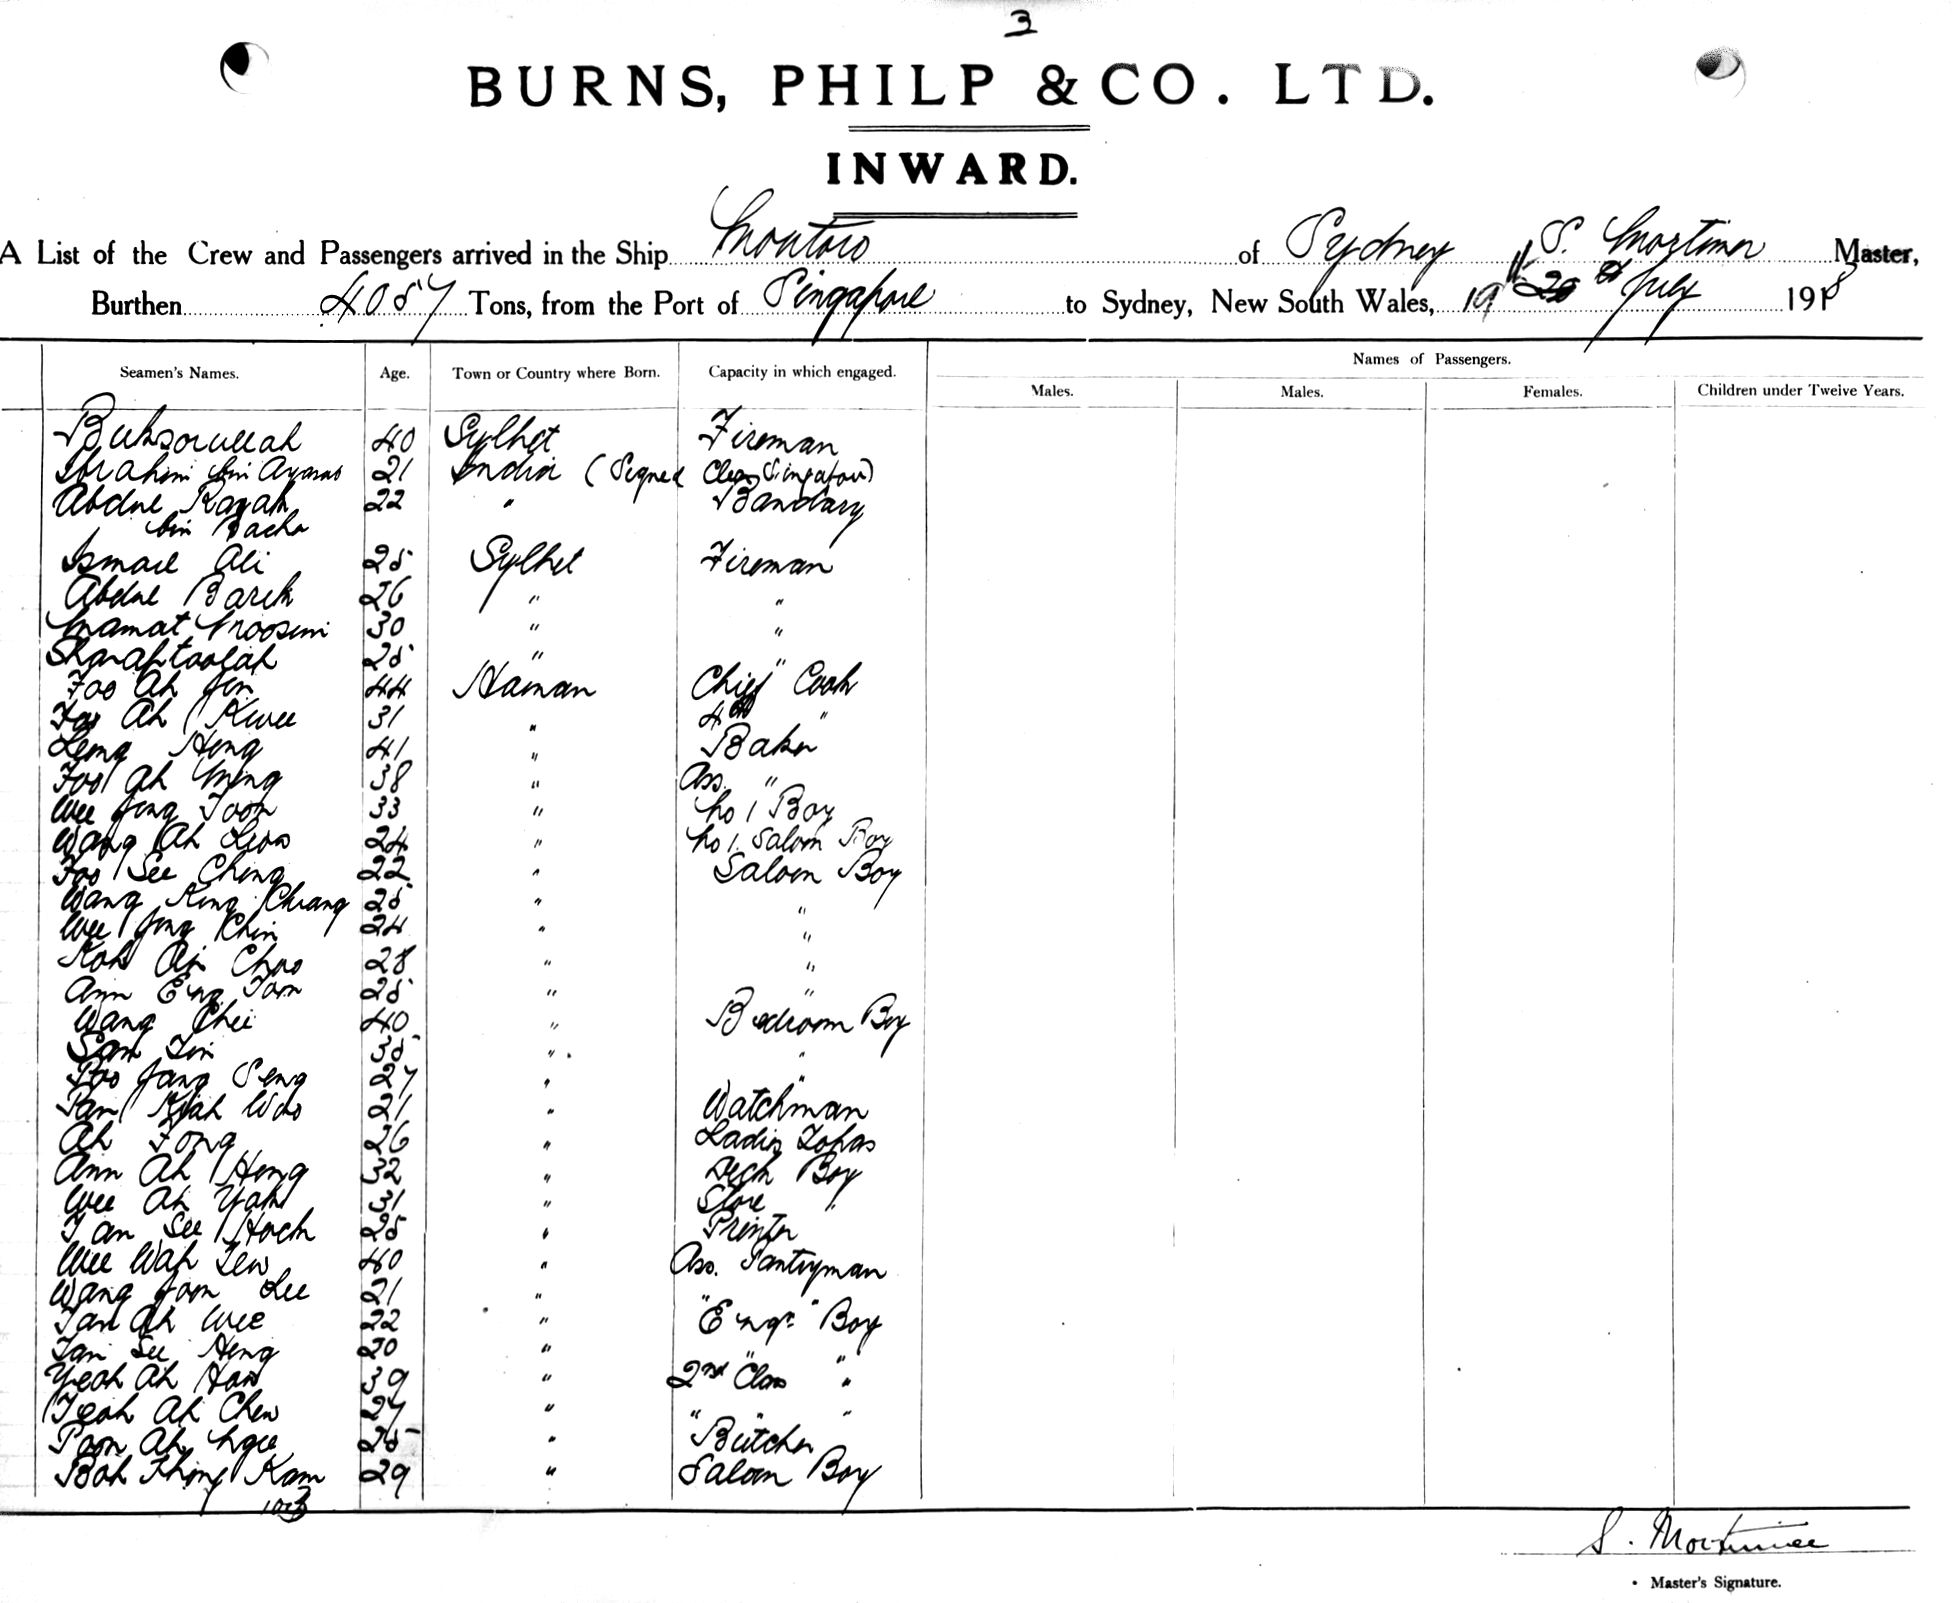 3
BURNS, PHILP & CO. LTD.
INWARD.
A List of the Crew and Passengers arrived in the Ship Montoro of Sydney S. Mortimer Master,
Burthen 4057 Tons, from the Port of Singapore to Sydney, New South Wales, 19 July 1918
Names of Passengers.
Seamen's Names. Age. Town or Country where Born. Capacity in which engaged. Males. Males. Females. Children under Twelve Years.
40 Sylhet Fireman
Ibrahim bin 21 India (Signed Clean Singapore)
Abdul 22 " Bandary
bin Bacha
Ismail Ali 25 Sylhet Fireman
Abdul Barik 26 " "
Mamat Moosim 30 " "
25 " "
Foo Ah Jin 44 Hainan Chief Cook
Foo Ah Kwee 31 " 4th "
Leng Heng 41 " Baker
Foo Ah Ming 38 " Ass. "
Wee Jong Toon 33 " No 1 Boy
Wang Ah 24 " No 1. Saloon Boy
Foo See Cheng 22 " Saloon Boy
Wang King Chuang 25 " "
Wee Jong Khin 24 " "
Koh Choo 28 " "
Ann Eng Toon 25 " "
Wang Chee 40 " Bedroom Boy
35 " "
Jang Seng 27 " "
Tan Kjah Woo 21 " Watchman
Ah Fong 26 " Ladies
Ann Ah Heng 32 " Deck Boy
Wee Ah Yam 31 " Store "
Tan See Hock 25 " Printer
Wee Wah Lew 40 " Ass. Pantryman
Wang Joon Lee 21 " " "
Tan Ah Wee 22 " Engr. Boy
Tan See Heng 20 " " "
Yeoh Ah Han 39 " 2nd Class "
Yeoh Ah Chew 27 " " " "
Poon Ah Ngee 25 " Butcher
Boh Khing Kam 29 " Saloon Boy
103
S. Mortimer
Master's Signature.